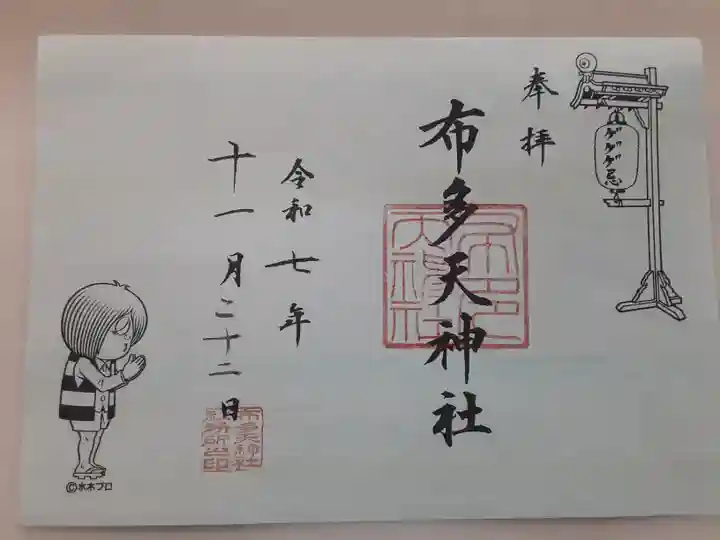 奉拝
ゲゲゲ忌
布多天神社
令和七年
十一月二十二日
布多天神社
社務所之印
©水木プロ